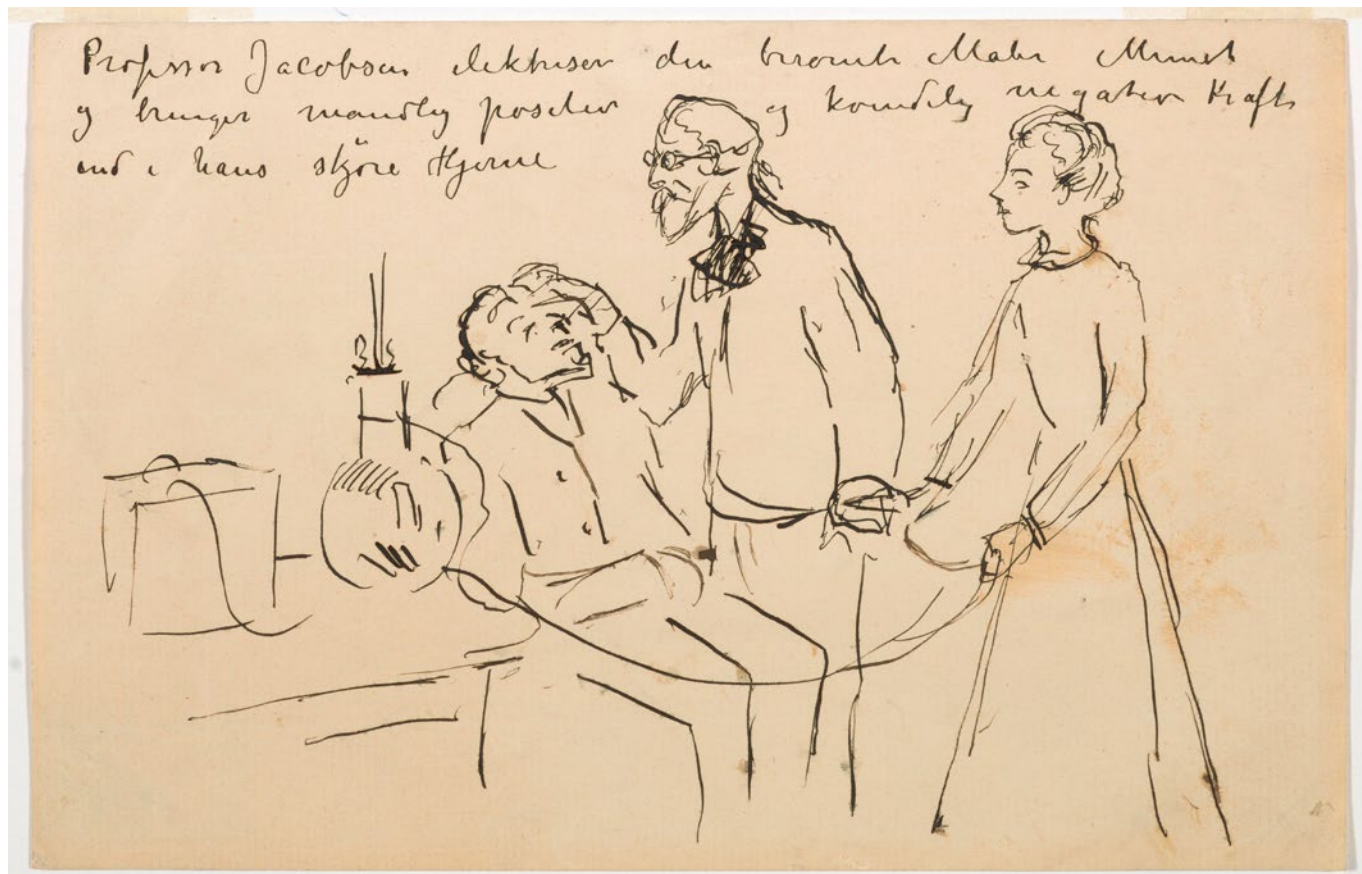 Professor Jacobsen elektriser den berømte Maler Munch
og bringer mandlig positiv og kvindelig negativ Kraft
ind i hans skjöre Hjerne